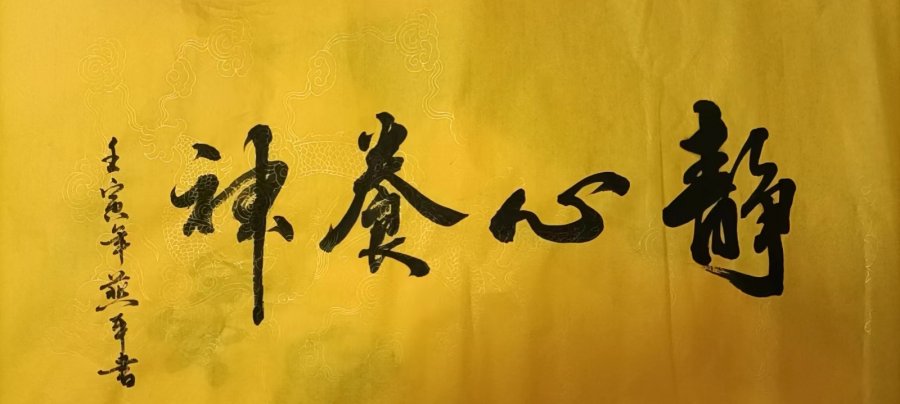 静心養神
壬寅年燕平書